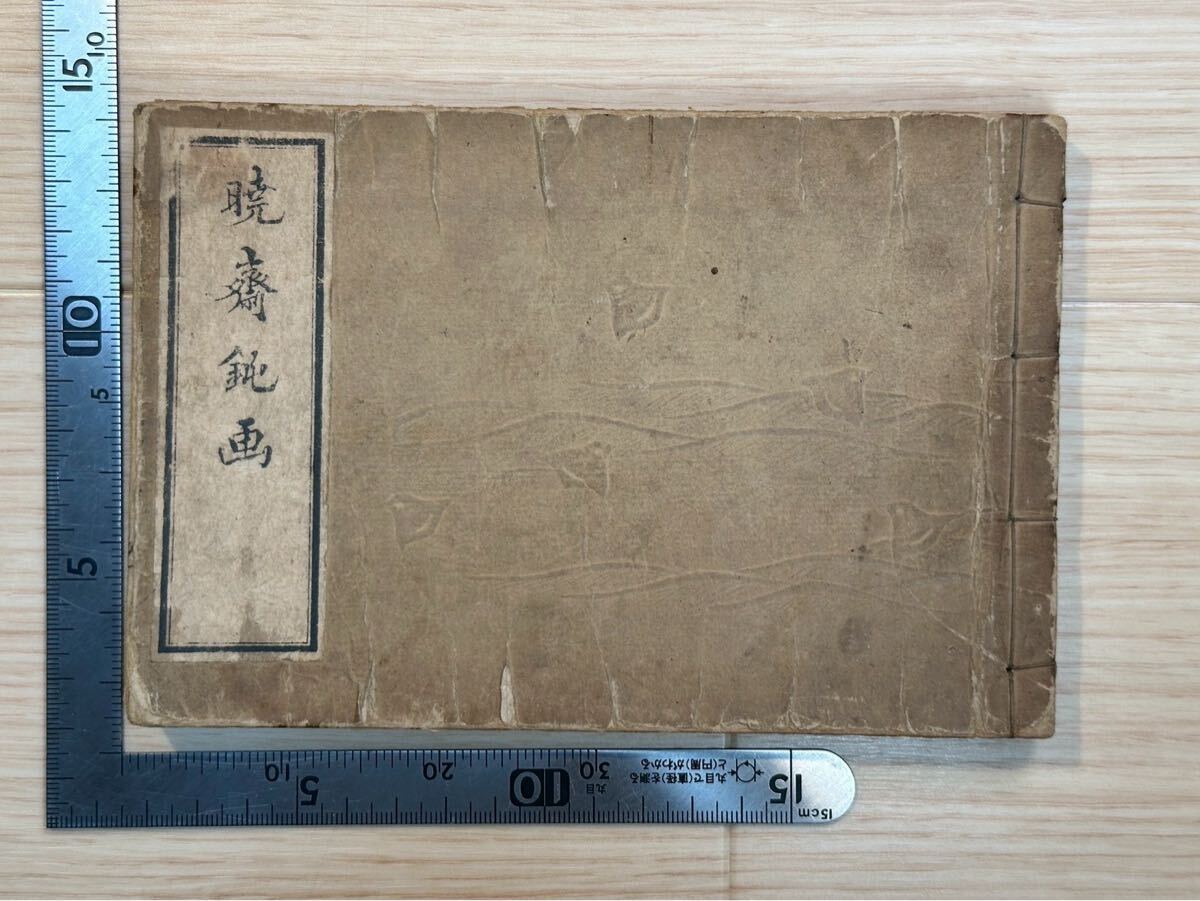 暁斎鈍画
15
10
10
5
5
5
10
20
10
30
丸目
丸目で(直径)を測る
と(円周)がわかる
15
15cm